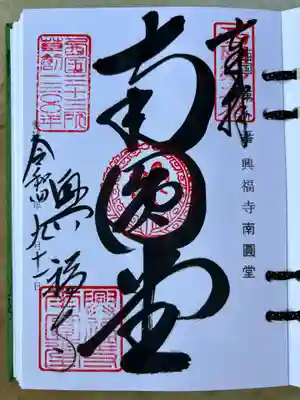 奉拝
興福寺南圓堂
南圓堂
西国三十三所
草創一三〇〇年
興福寺
令和四年九月十一日